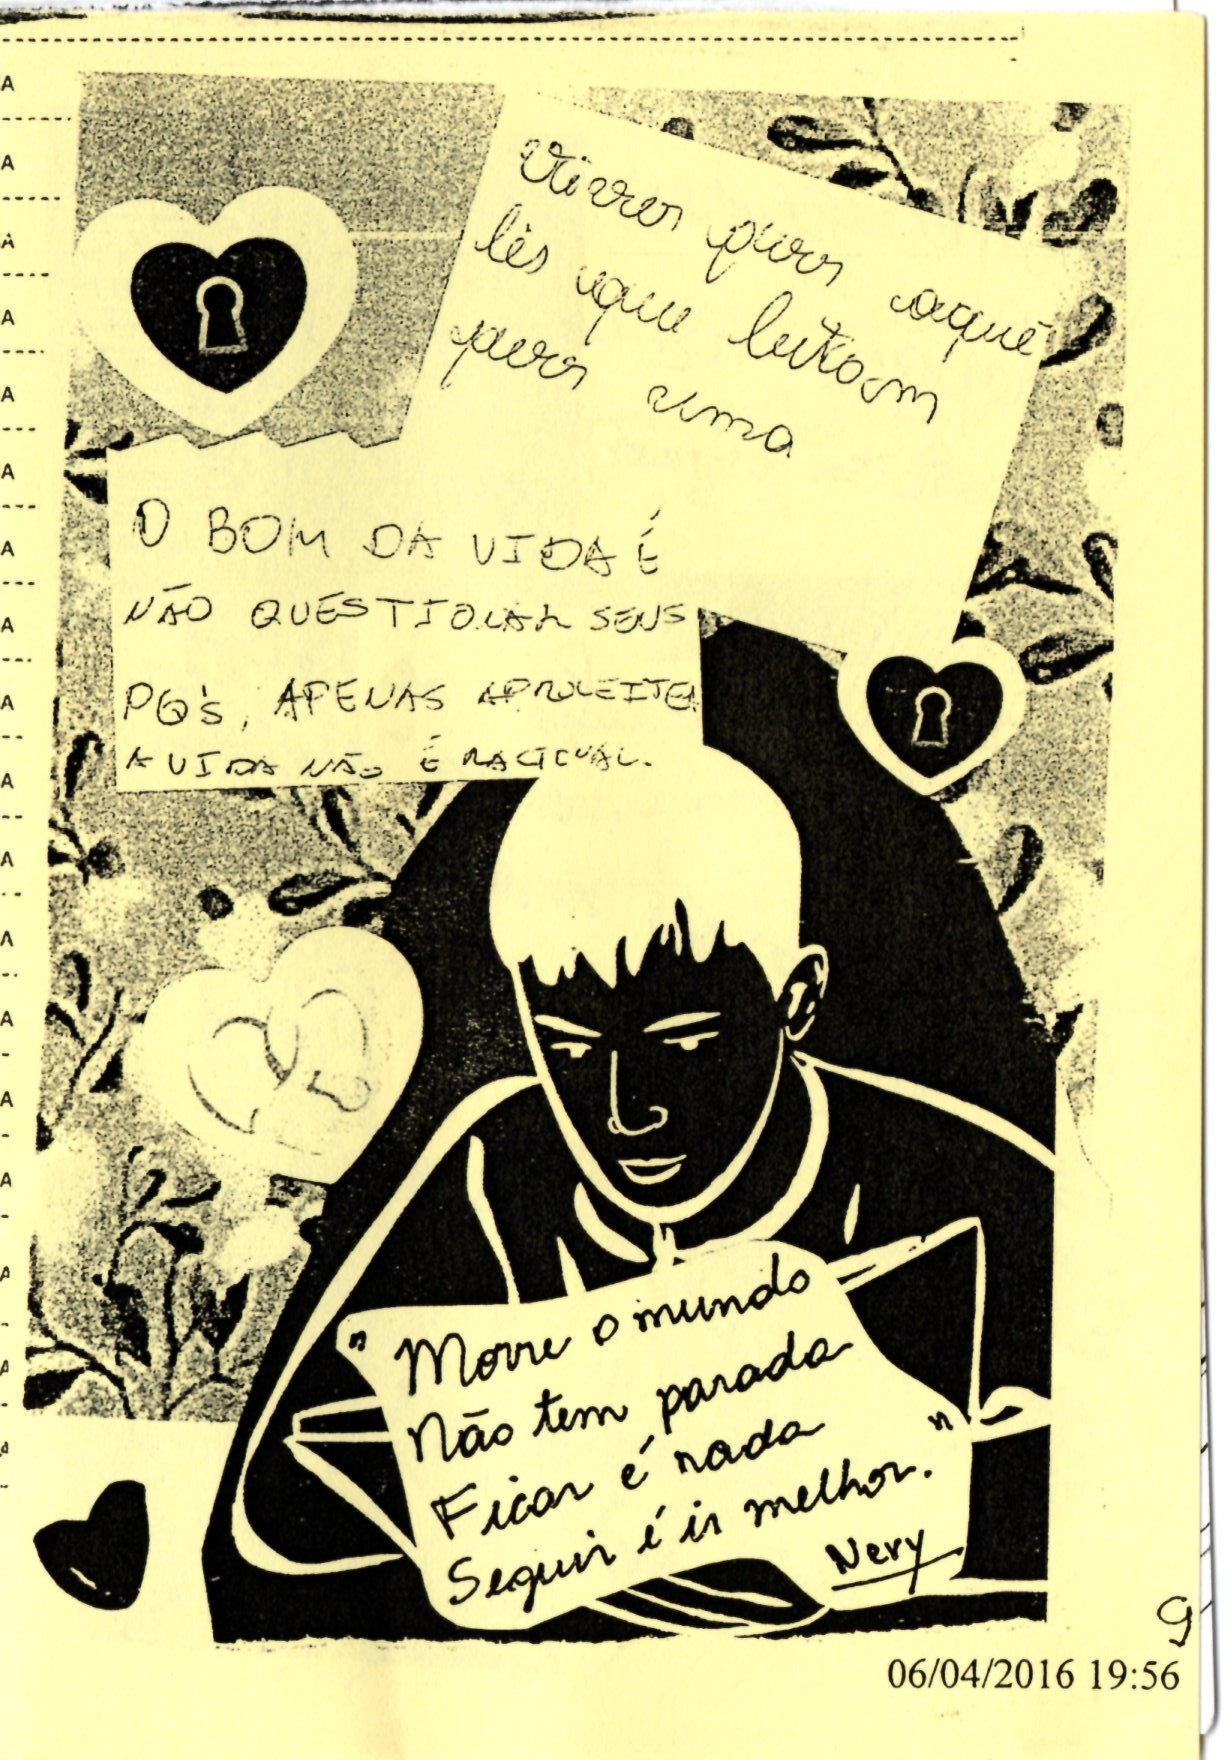 Viver por aquê
lês que lutam
por uma
O BOM DA VIDA É
NÃO QUESTIONAR SEUS
PQ's, APENAS APROVEITE
A VIDA NÃO É RACIONAL.
"Morre o mundo
Não tem parada
Ficar é nada
Seguir é ir melhor."
Nery
9
06/04/2016 19:56